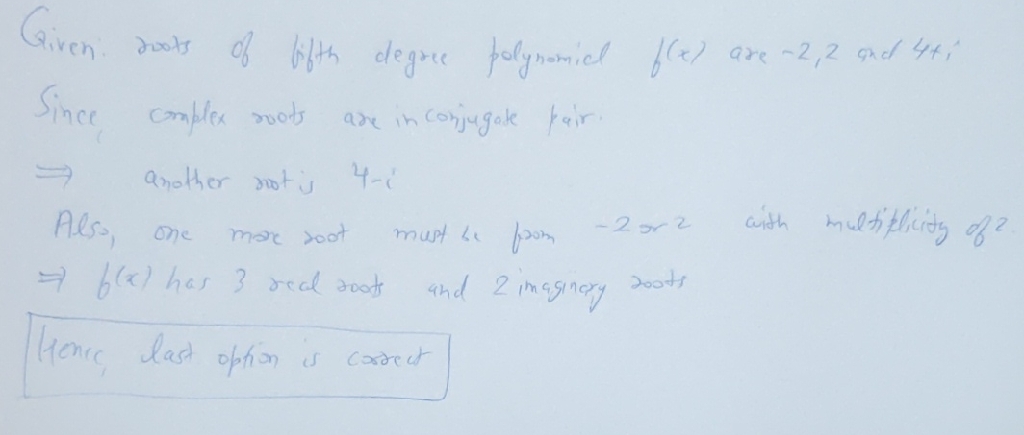 Given: roots of fifth degree polynomial f(x) are -2,2 and 4+i
Since, complex roots are in conjugate pair.
⇒ another root is 4-i
Also, one more root must be from -2 or 2 with multiplicity of 2.
⇒ f(x) has 3 real roots and 2 imaginary roots
Hence, last option is correct